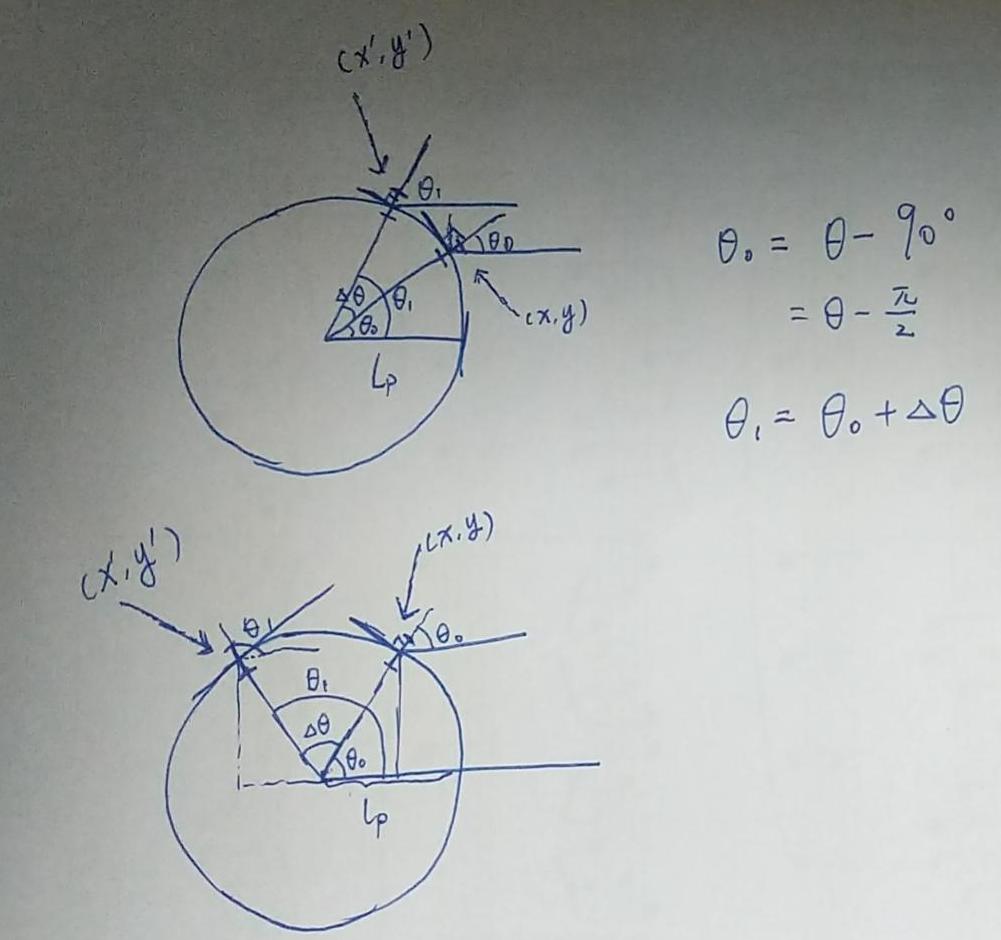 (x', y')
θ₁
θ₀
Δθ
θ₁
θ₀
(x, y)
Lp
θ₀ = θ - 90°
= θ - π/2
θ₁ = θ₀ + Δθ
(x', y')
(x, y)
θ₁
θ₀
θ₁
Δθ
θ₀
Lp